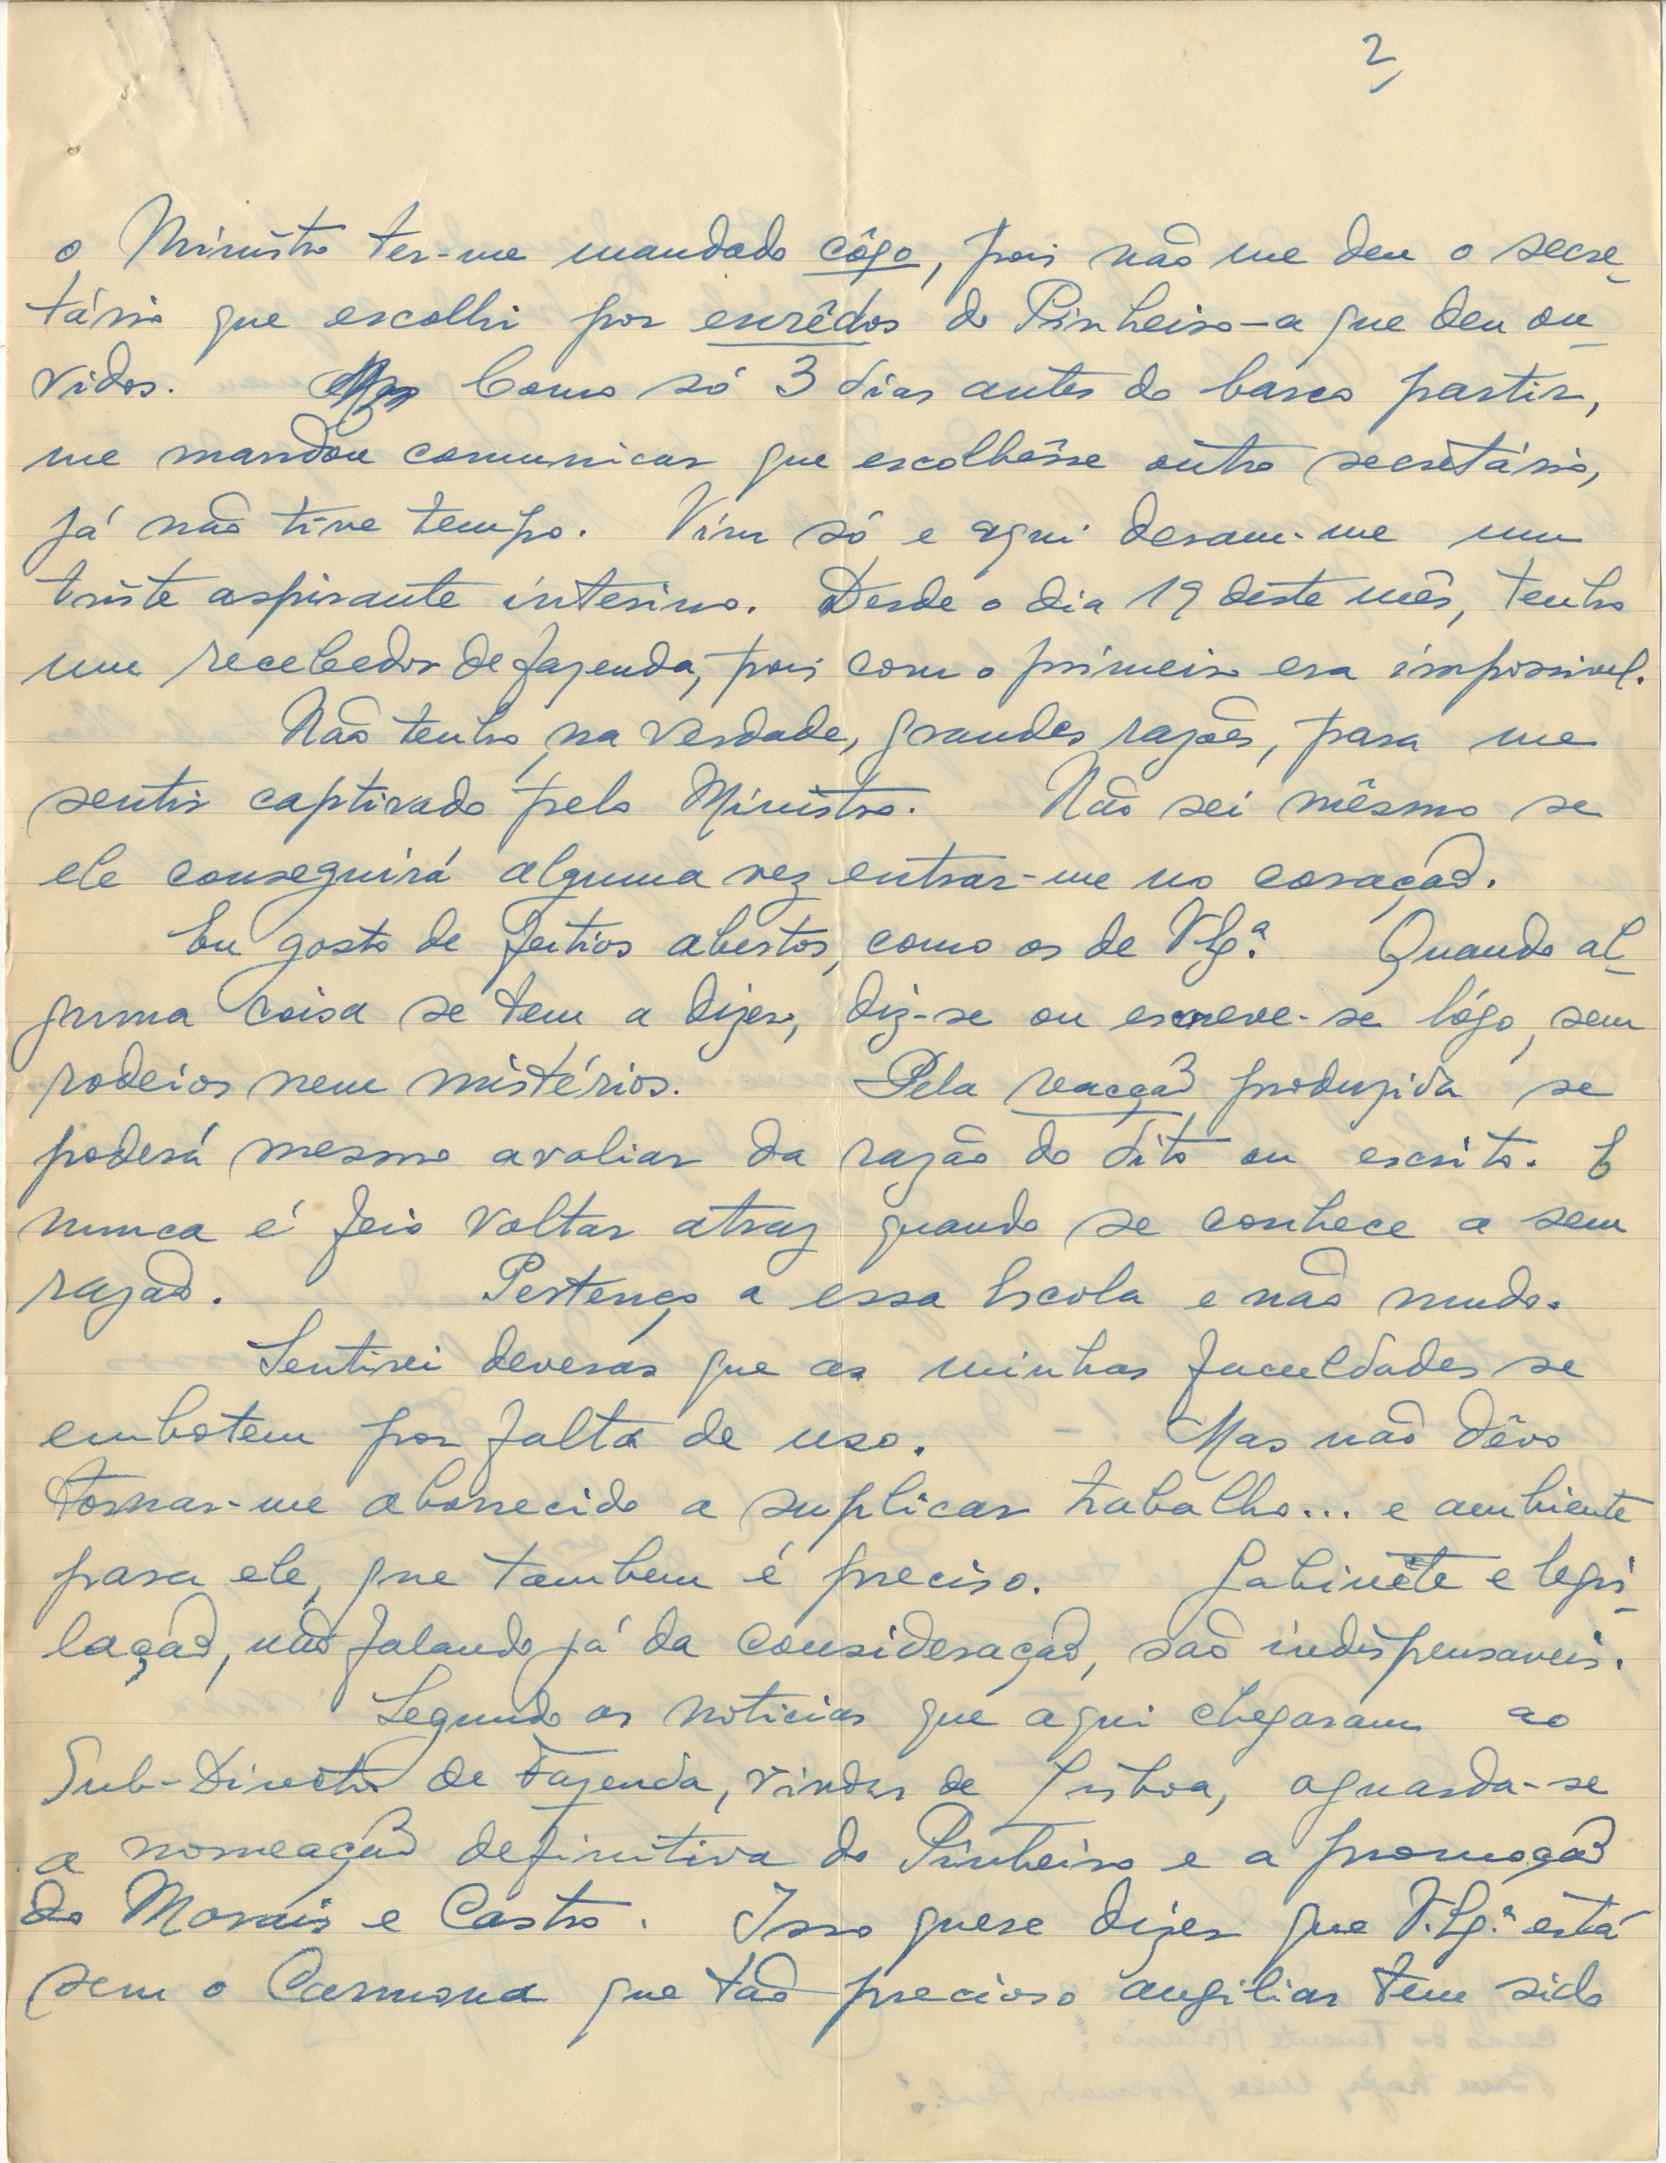 2
o Ministro ter-me mandado côgo, pois não me deu o secre-
tário que escolhi por enrêdos do Pinheiro - a que deu ou-
vidos. Como só 3 dias antes do barco partir,
me mandou comunicar que escolhêsse outro secretário,
já não tive tempo. Vim só e aqui deram-me um
triste aspirante interino. Desde o dia 19 deste mês, tenho
um recebedor de fazenda, pois com o primeiro era impossivel.
Não tenho, na verdade, grandes razões, para me
sentir captivado pelo Ministro. Não sei mêsmo se
ele conseguirá alguma vez entrar-me no coração.
Eu gosto de feitios abertos, como os de V. Exª. Quando al-
guma coisa se tem a dizer, diz-se ou escreve-se lógo, sem
rodeios nem mistérios. Pela reacção produzida se
poderá mesmo avaliar da razão do dito ou escrito. E
nunca é feio voltar atraz quando se conhece a sem
razão. Pertenço a essa Escola e não mudo.
Sentirei deveras que as minhas faculdades se
embotem por falta de uso. - Mas não dêvo
tornar-me aborrecido a suplicar trabalho... e ambiente
para ele, que tambem é preciso. Gabinête e legis-
lação, não falando já da consideração, são indispensaveis.
Segundo as noticias que aqui chegaram ao
Sub-Director de Fazenda, vindas de Lisboa, aguarda-se
a nomeação definitiva do Pinheiro e a promoção
do Morais e Castro. Isso quere dizer que V. Exª. está
sem o Carmona que tão precioso auxiliar tem sido